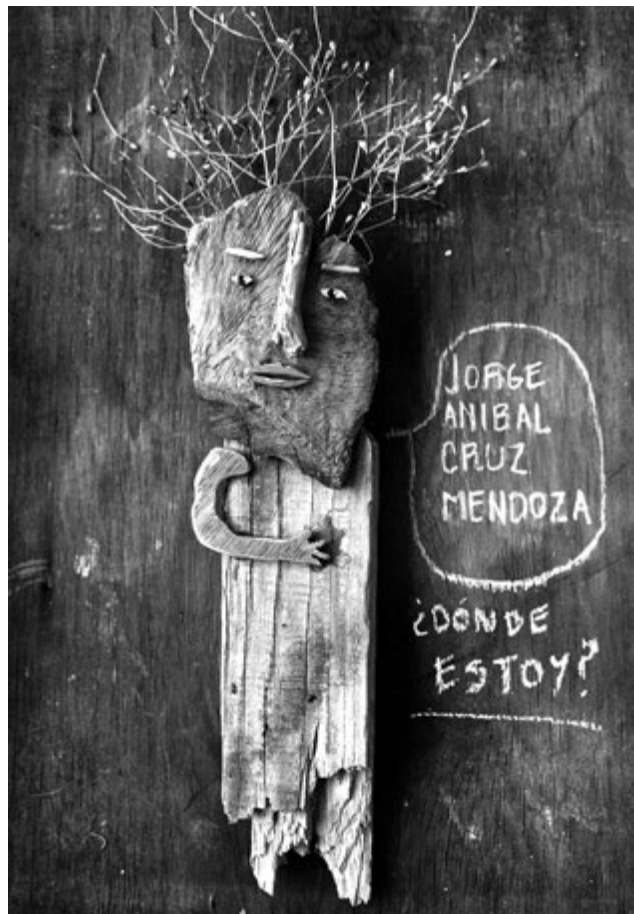 JORGE
ANIBAL
CRUZ
MENDOZA
¿DÓNDE
ESTOY?